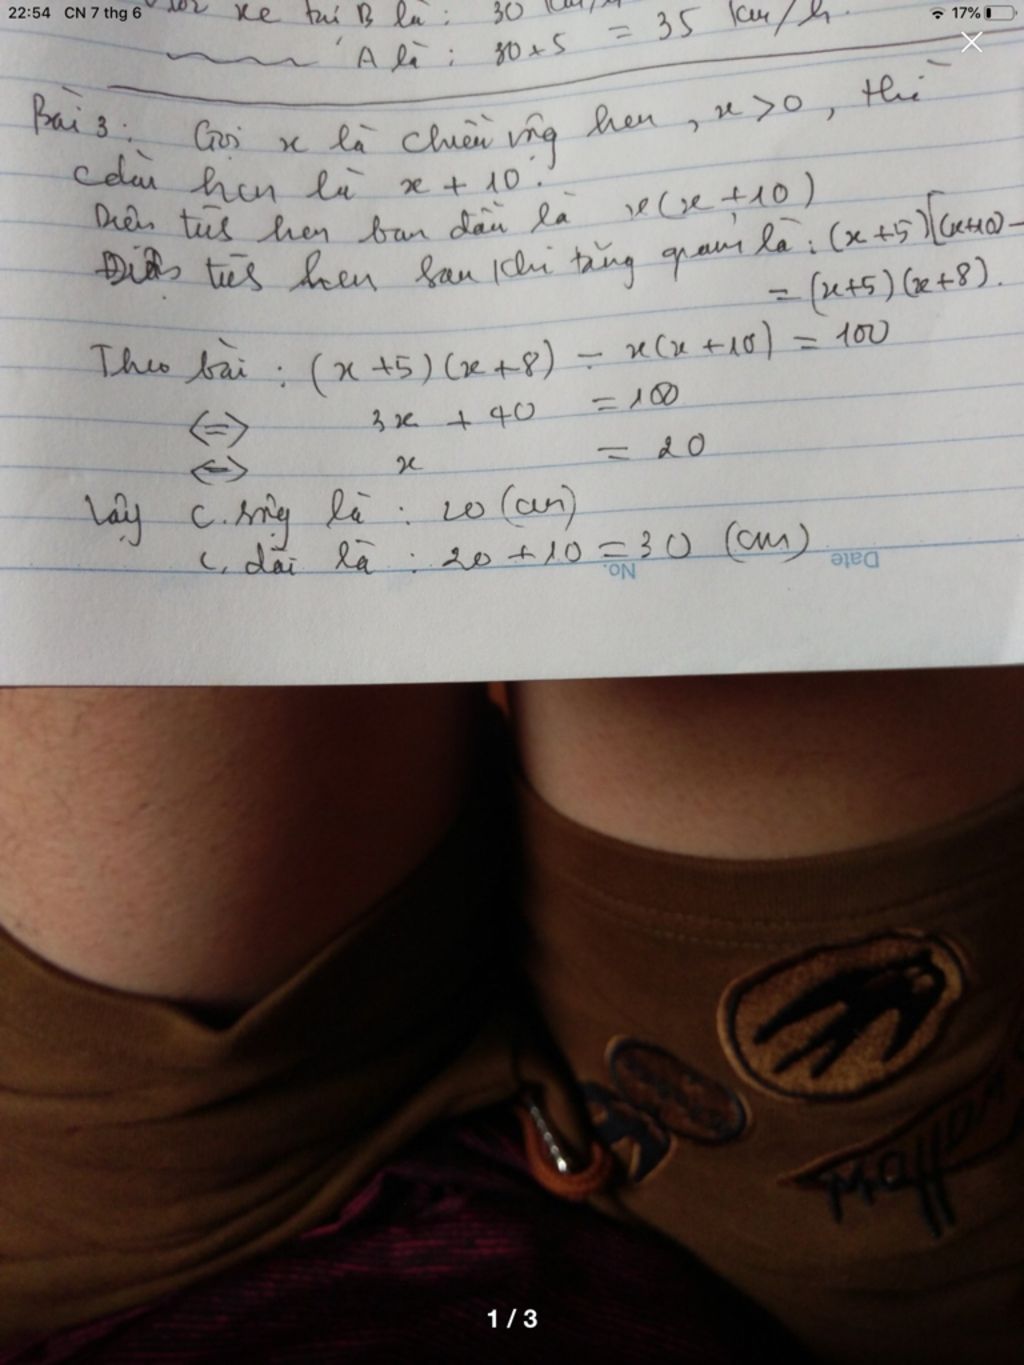 22:54 CN 7 thg 6
17%
xe tải B là : 30 km/h
A là : 30+5 = 35 km/h.
Bài 3: Gọi x là chiều rộng hcn, x>0, thì
cdài hcn là x + 10.
Diện tích hcn ban đầu là x(x+10)
Diện tích hcn sau khi tăng giảm là : (x+5)[(x+10)-
= (x+5)(x+8).
Theo bài : (x+5)(x+8) - x(x+10) = 100
<=> 3x + 40 = 100
<=> x = 20
Vậy c. rộng là : 20 (cm)
c. dài là : 20 + 10 = 30 (cm)
No.
Date
1 / 3